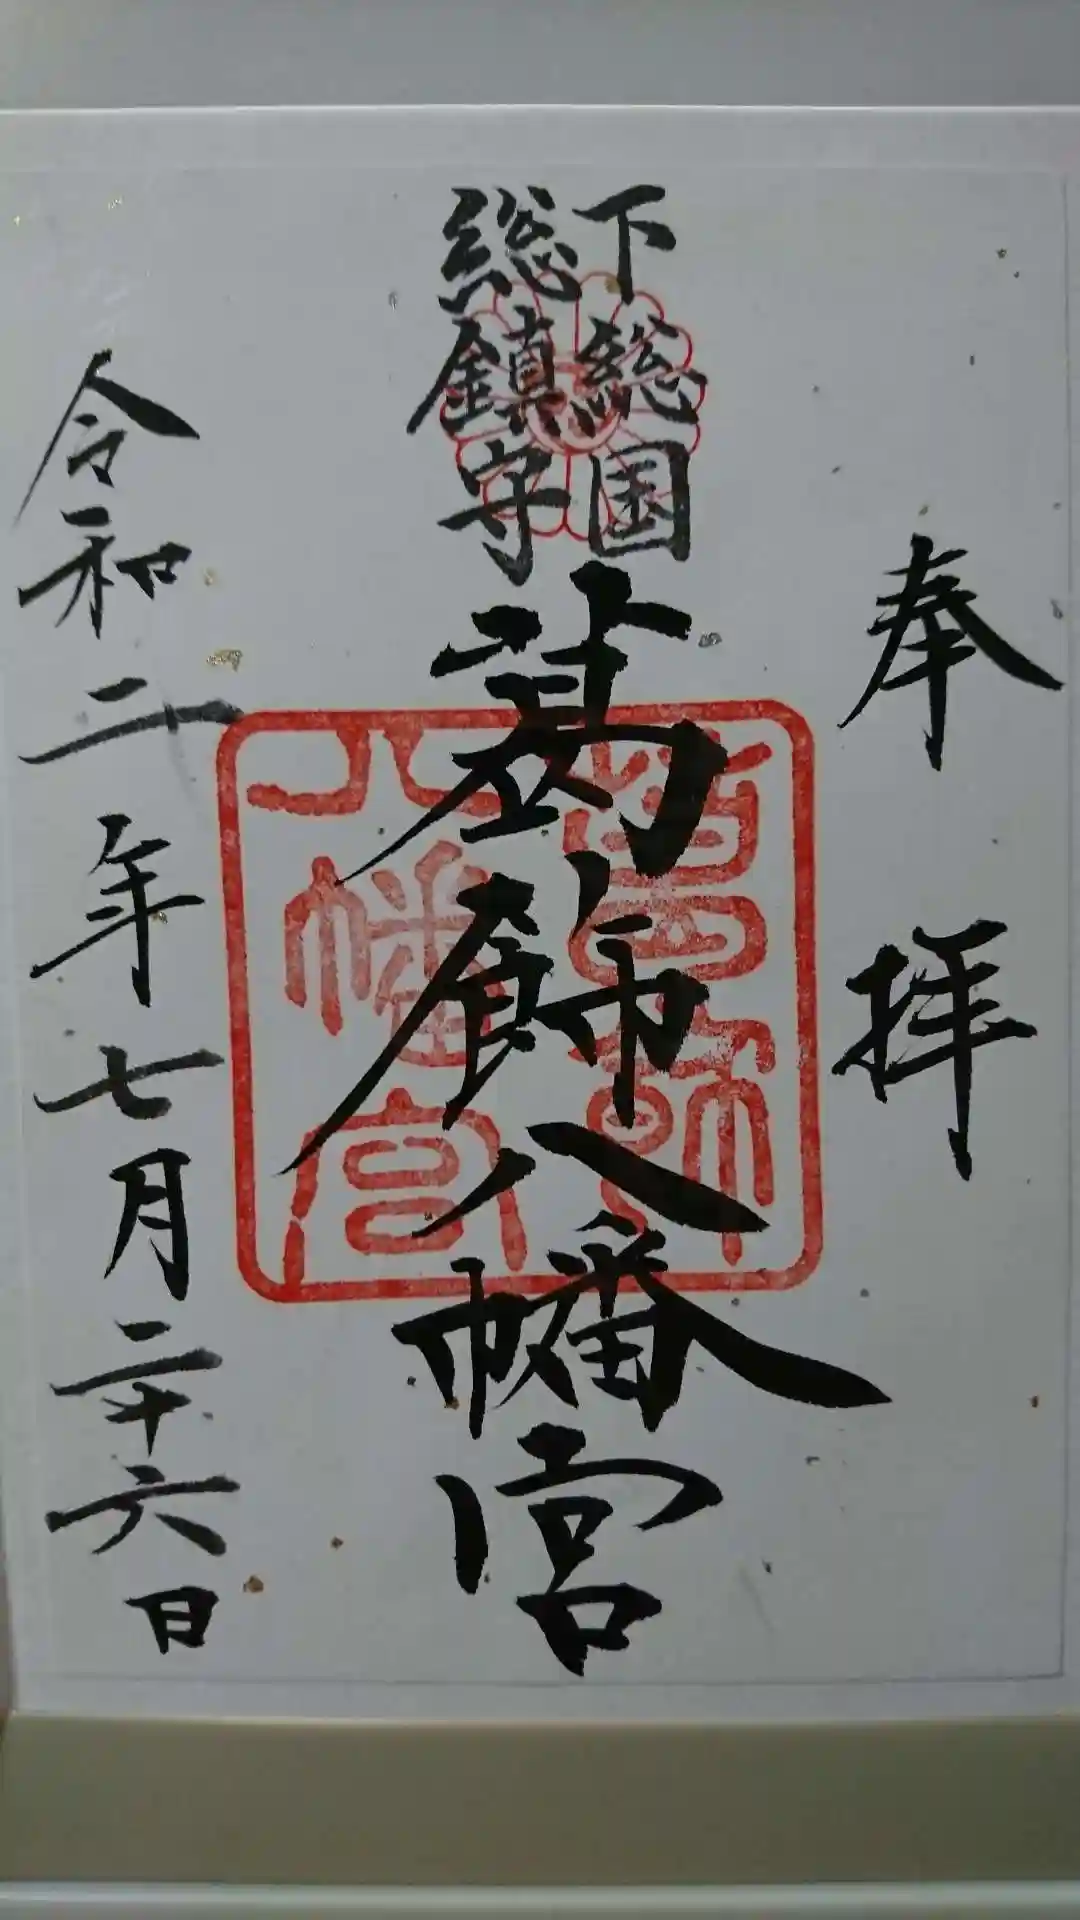 奉拝
下総国
総鎮守
葛飾八幡宮
葛飾
八幡宮
令和二年七月二十六日